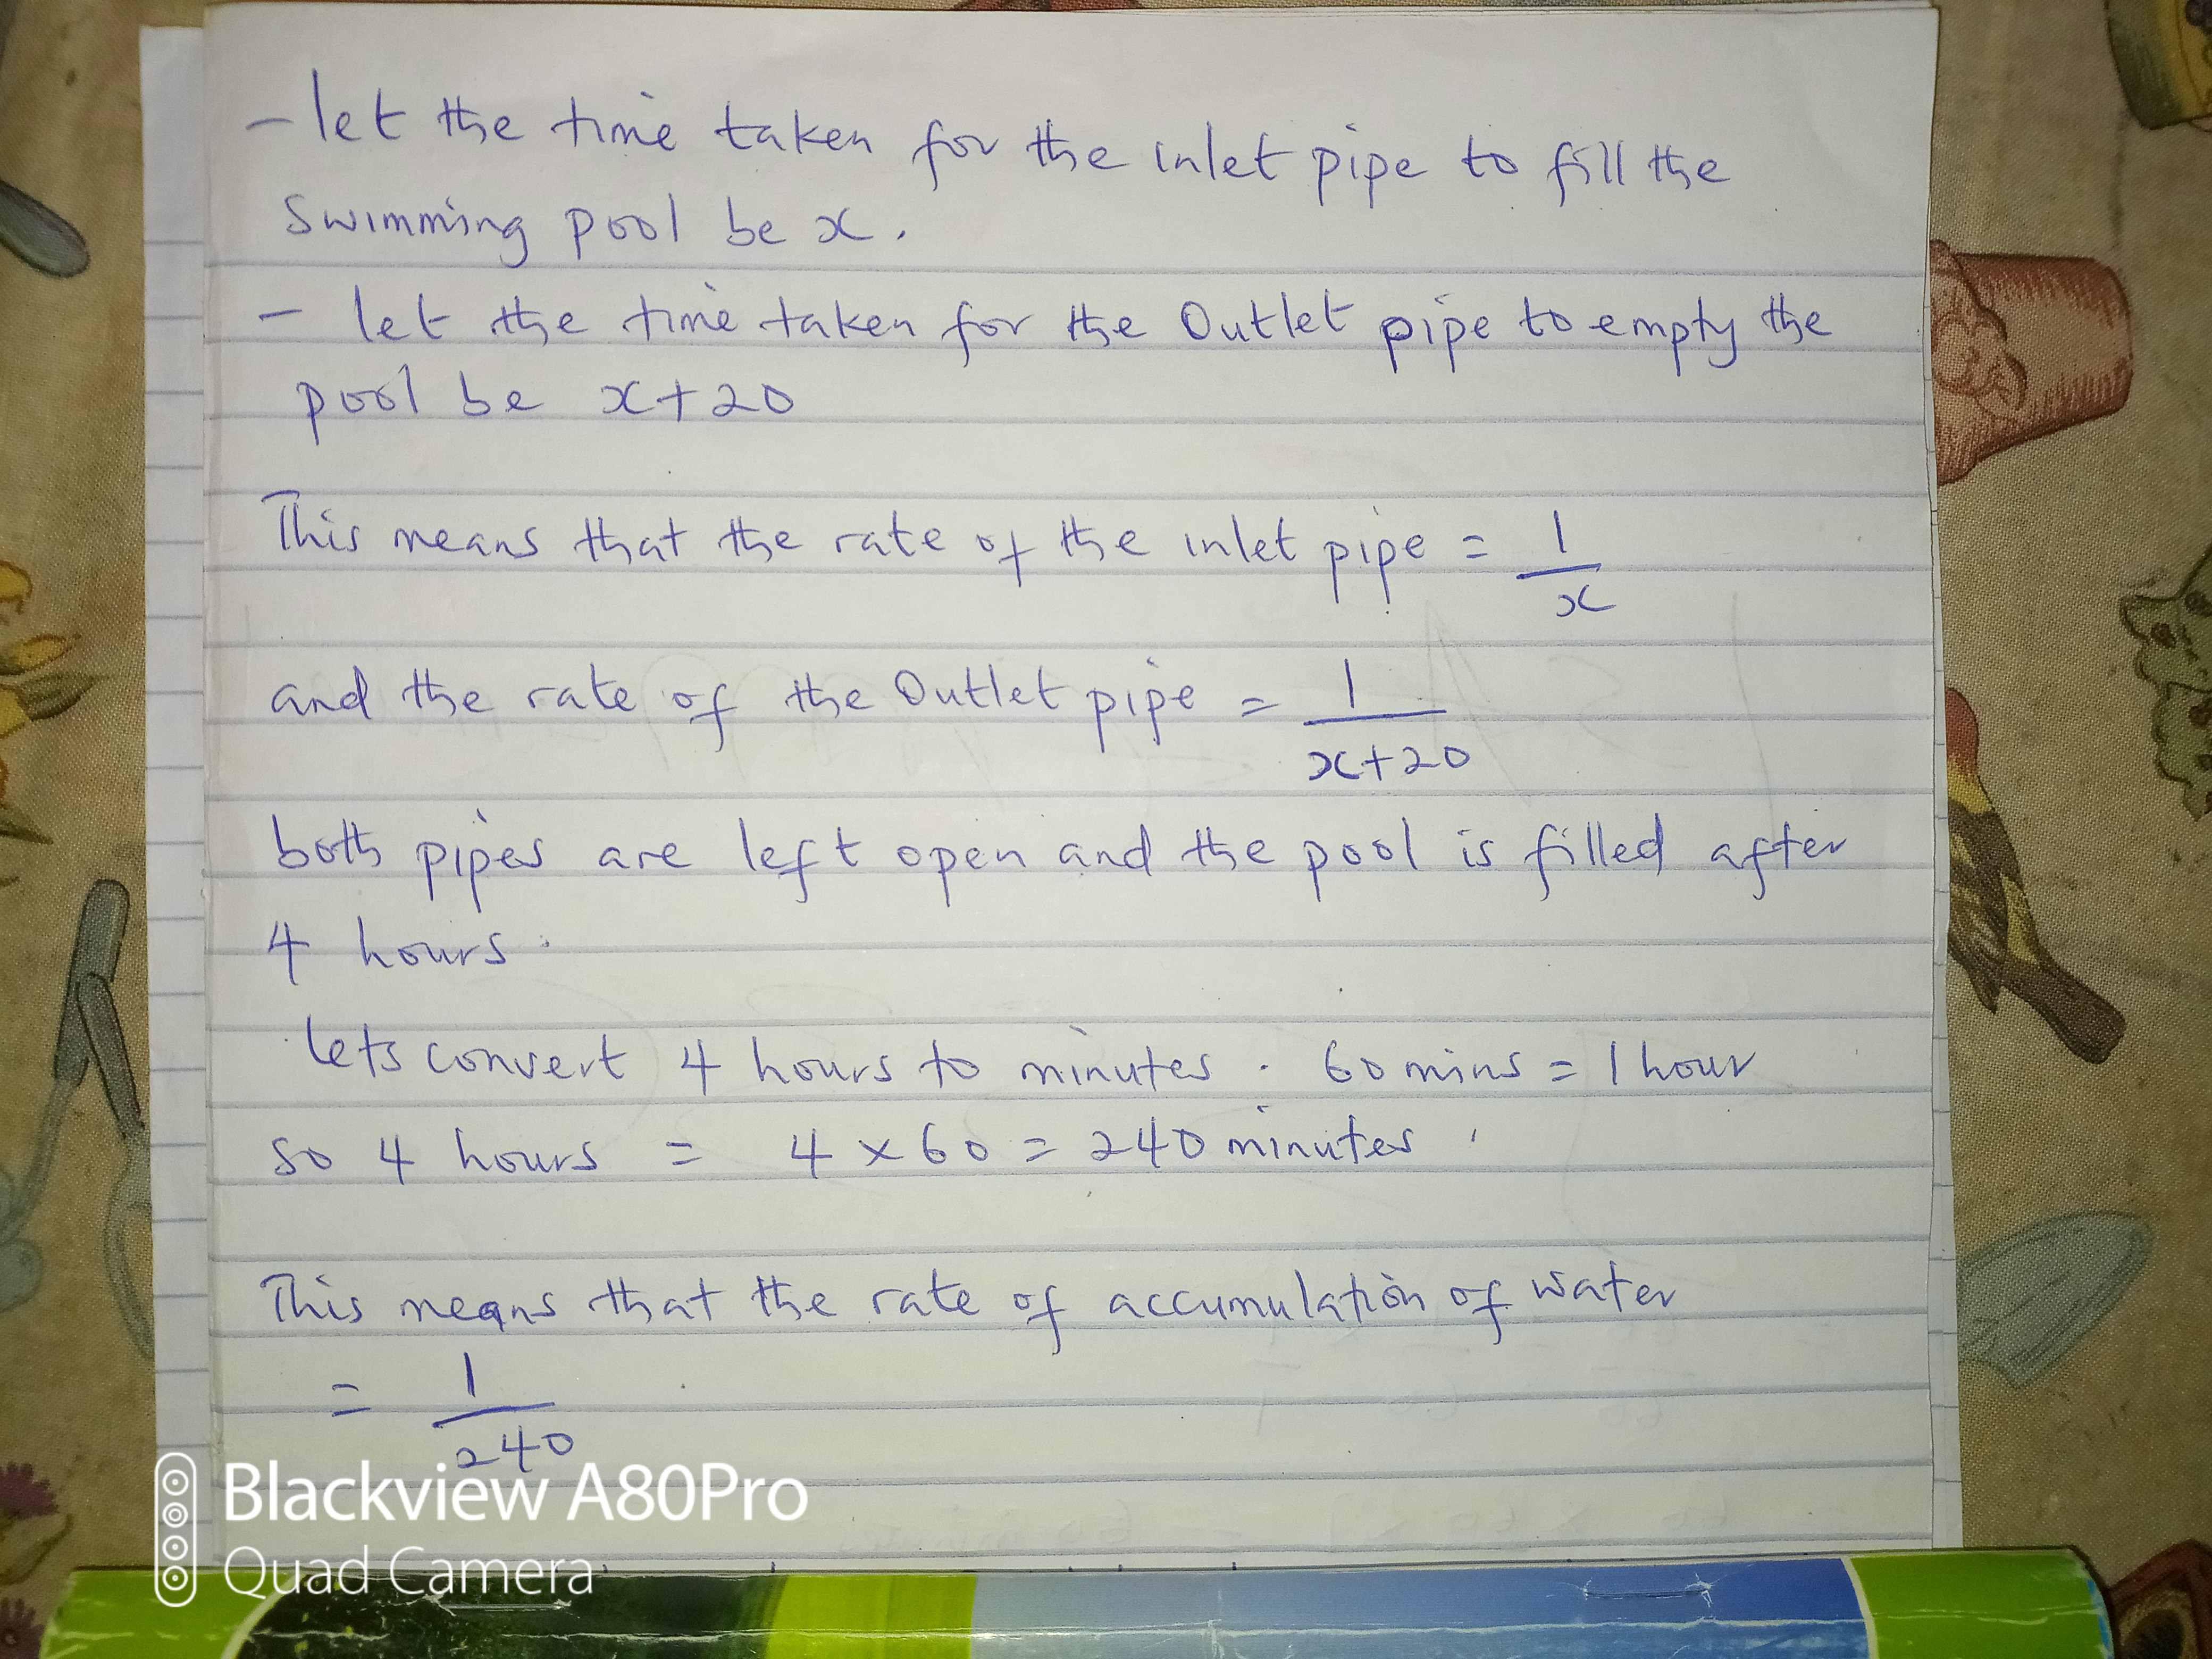 - let the time taken for the inlet pipe to fill the
swimming pool be x.
- let the time taken for the Outlet pipe to empty the
pool be x+20
This means that the rate of the inlet pipe = 1/x
and the rate of the Outlet pipe = 1/x+20
both pipes are left open and the pool is filled after
4 hours.
lets convert 4 hours to minutes. 60 mins = 1 hour
so 4 hours = 4 x 60 = 240 minutes.
This means that the rate of accumulation of water
= 1/240
Blackview A80Pro
Quad Camera